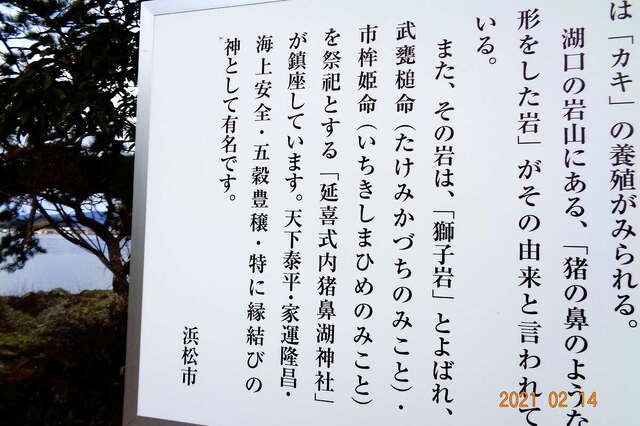 は「カキ」の養殖がみられる。
湖口の岩山にある、「猪の鼻のような
形をした岩」がその由来と言われて
いる。
また、その岩は、「獅子岩」とよばれ、
武甕槌命(たけみかづちのみこと)・
市杵姫命(いちきしまひめのみこと)
を祭祀とする「延喜式内猪鼻湖神社」
が鎮座しています。天下泰平・家運隆昌・
海上安全・五穀豊穣・特に縁結びの
神として有名です。
浜松市
2021 02 14